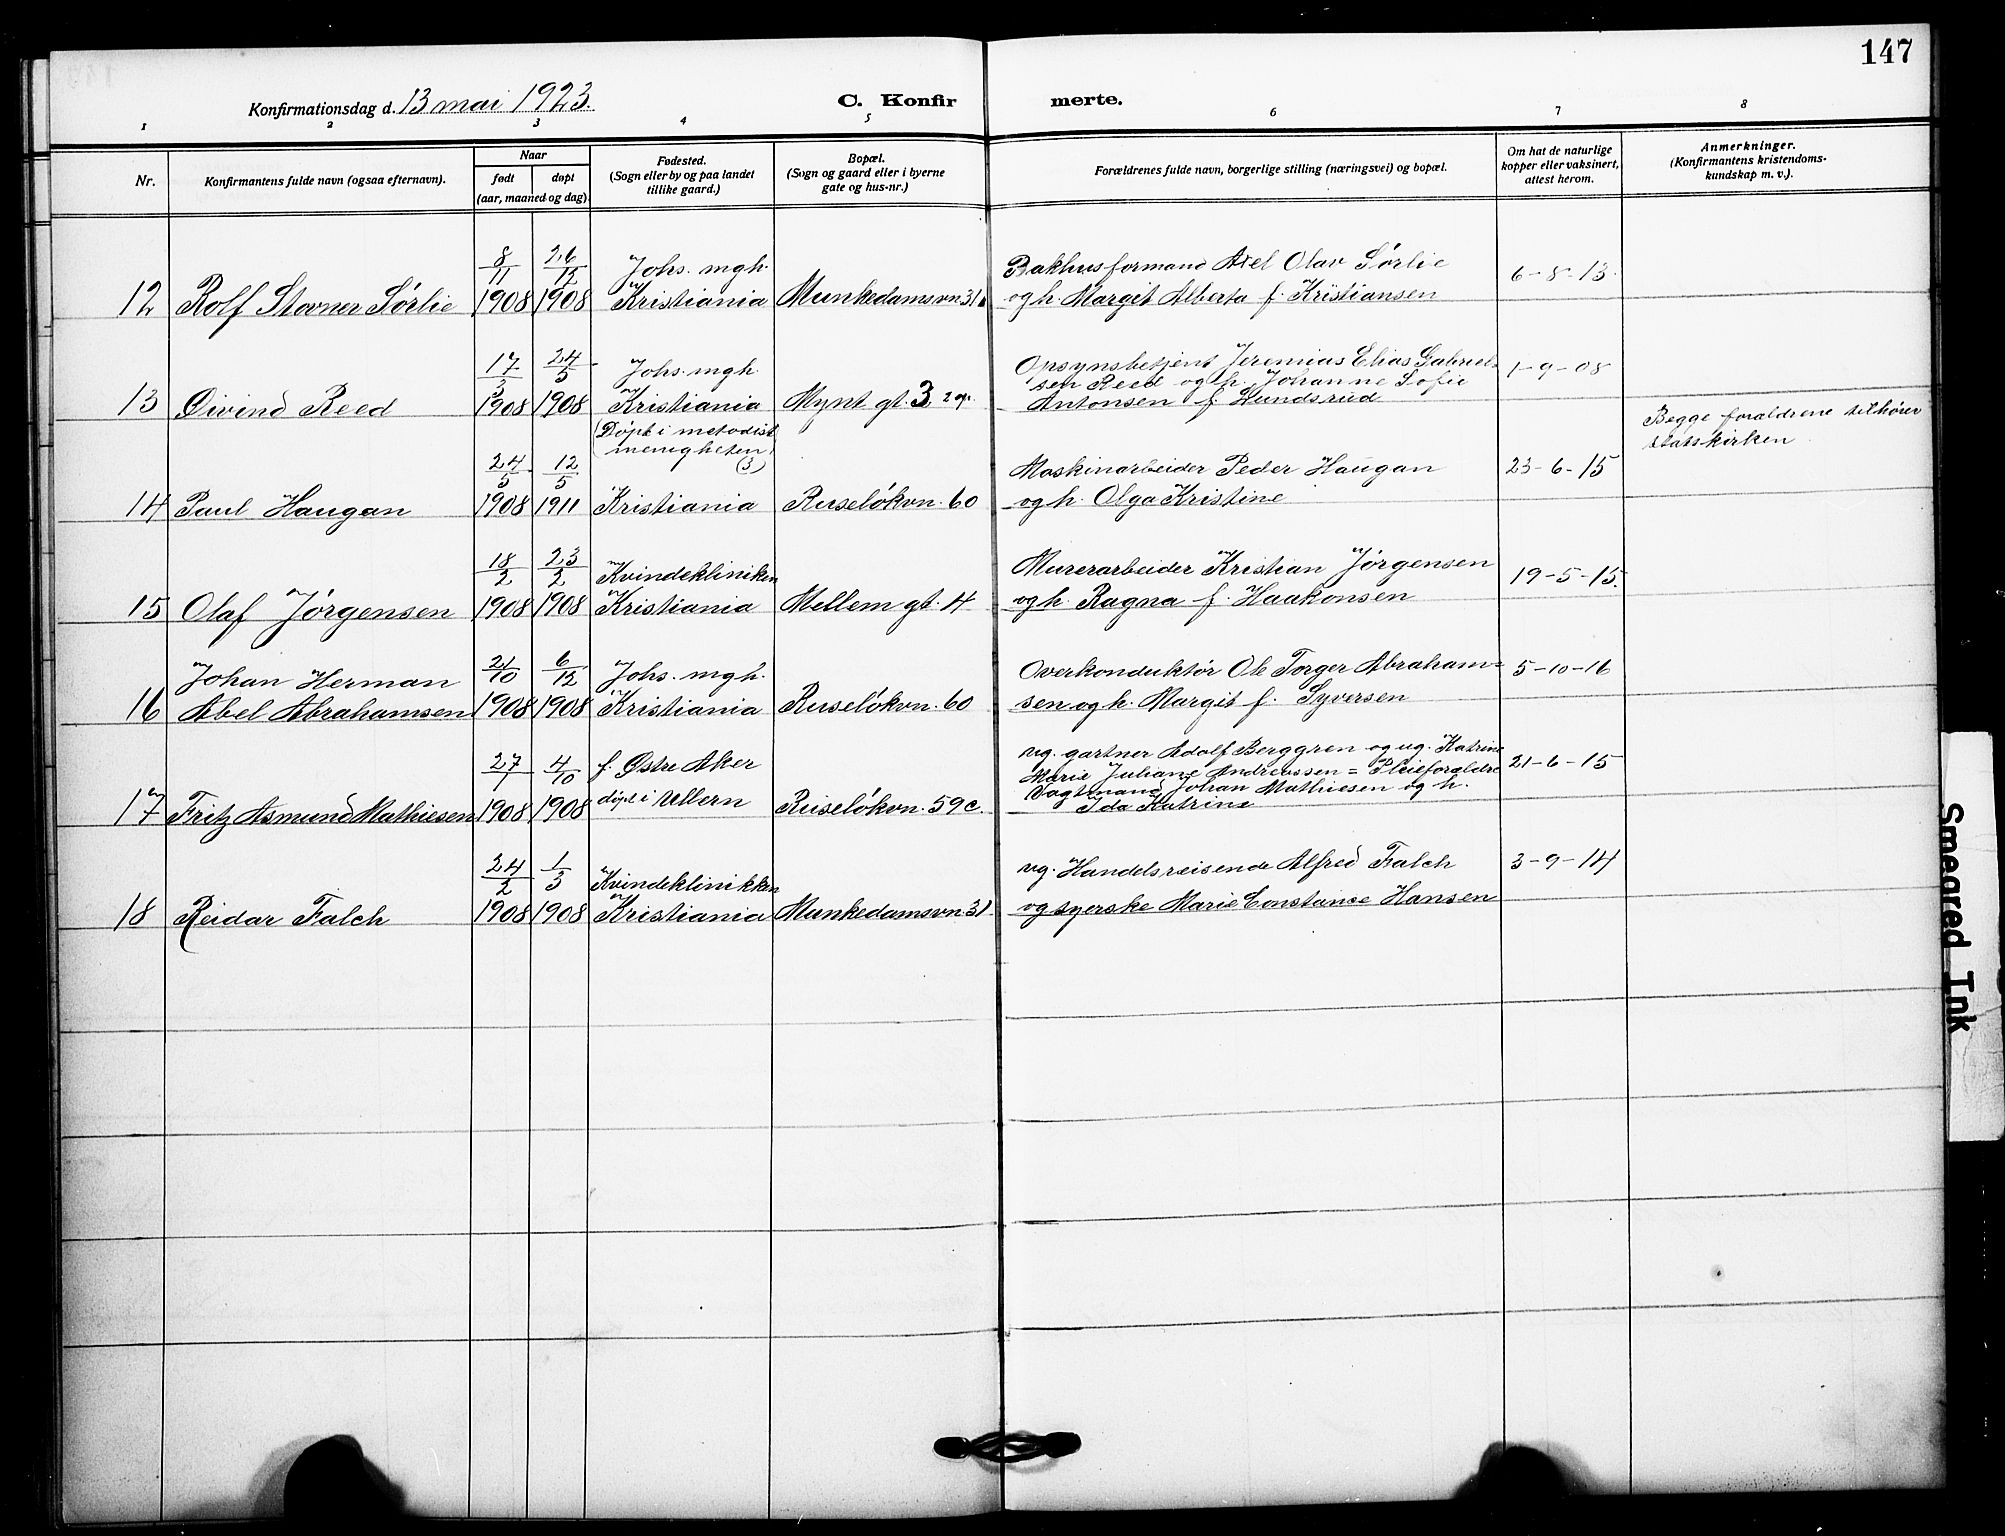 147
Konfirmationsdag d. 13 mai 1923.
C. Konfir merte.
1 2 3 4 5 6 7 8
Nr.
Konfirmantens fulde navn (ogsaa efternavn).
Naar
født døpt
(aar, maaned og dag)
Fødested.
(Sogn eller by og paa landet
tillike gaard.)
Bopæl.
(Sogn og gaard eller i byerne
gate og hus-nr.)
Forældrenes fulde navn, borgerlige stilling (næringsvei) og bopæl.
Om hat de naturlige
kopper eller vaksinert,
attest herom.
Anmerkninger.
(Konfirmantens kristendoms-
kundskap m. v.).
8/11 26/12 Johs. mgh. Bakhusformand Axel Olav Sørlie 6-8-13.
12 Rolf Stovner Sørlie 1908 1908 Kristiania Munkedamsvn. 31 og h. Margit Alberta f. Kristiansen
17/3 24/5 Johs. mgh. Opsynsbetjent Jeremias Elias Gabriel- 1-9-08
sen Reed og h. Johanne Sofie
13 Øivind Reed 1908 1908 Kristiania Mynt gt. 3 2 op. Antonsen f. Lundsrud
(Døpt i metodist
menigheten)
Begge forældrene tilhører
statskirken
24/5 12/5 (3) Maskinarbeider Peder Haugan 23-6-15
14 Paul Haugan 1908 1911 Kristiania Ruseløkvn. 60 og h. Olga Kristine
18/2 23/2 Kvindekliniken Murerarbeider Kristian Jørgensen 19-5-15.
15 Olaf Jørgensen 1908 1908 Kristiania Mellem gt. 4 og h. Ragna f. Haakonsen
Johan Herman 21/10 6/12 Johs. mgh. Overkonduktør Ole Torger Abraham= 5-10-16
16 Abel Abrahamsen 1908 1908 Kristiania Ruseløkvn. 60 sen og h. Margit f. Syversen
27/7 4/10 f. Østre Aker ug. gartner Adolf Berggren og ug. Katrine 21-6-15
Marie Juliane Andreassen = Pleieforældre
døpt i Ullern Vagtmand Johan Mathiesen og h.
17 Fritz Asmund Mathiesen 1908 1908 Ruseløkvn. 59c. Ida Katrine
24/2 1/3 Kvindeklinikken ug. Handelsreisende Alfred Falch 3-9-14
18 Reidar Falch 1908 1908 Kristiania Munkedamsvn. 31. og syerske Marie Constance Hansen
Smeared Ink